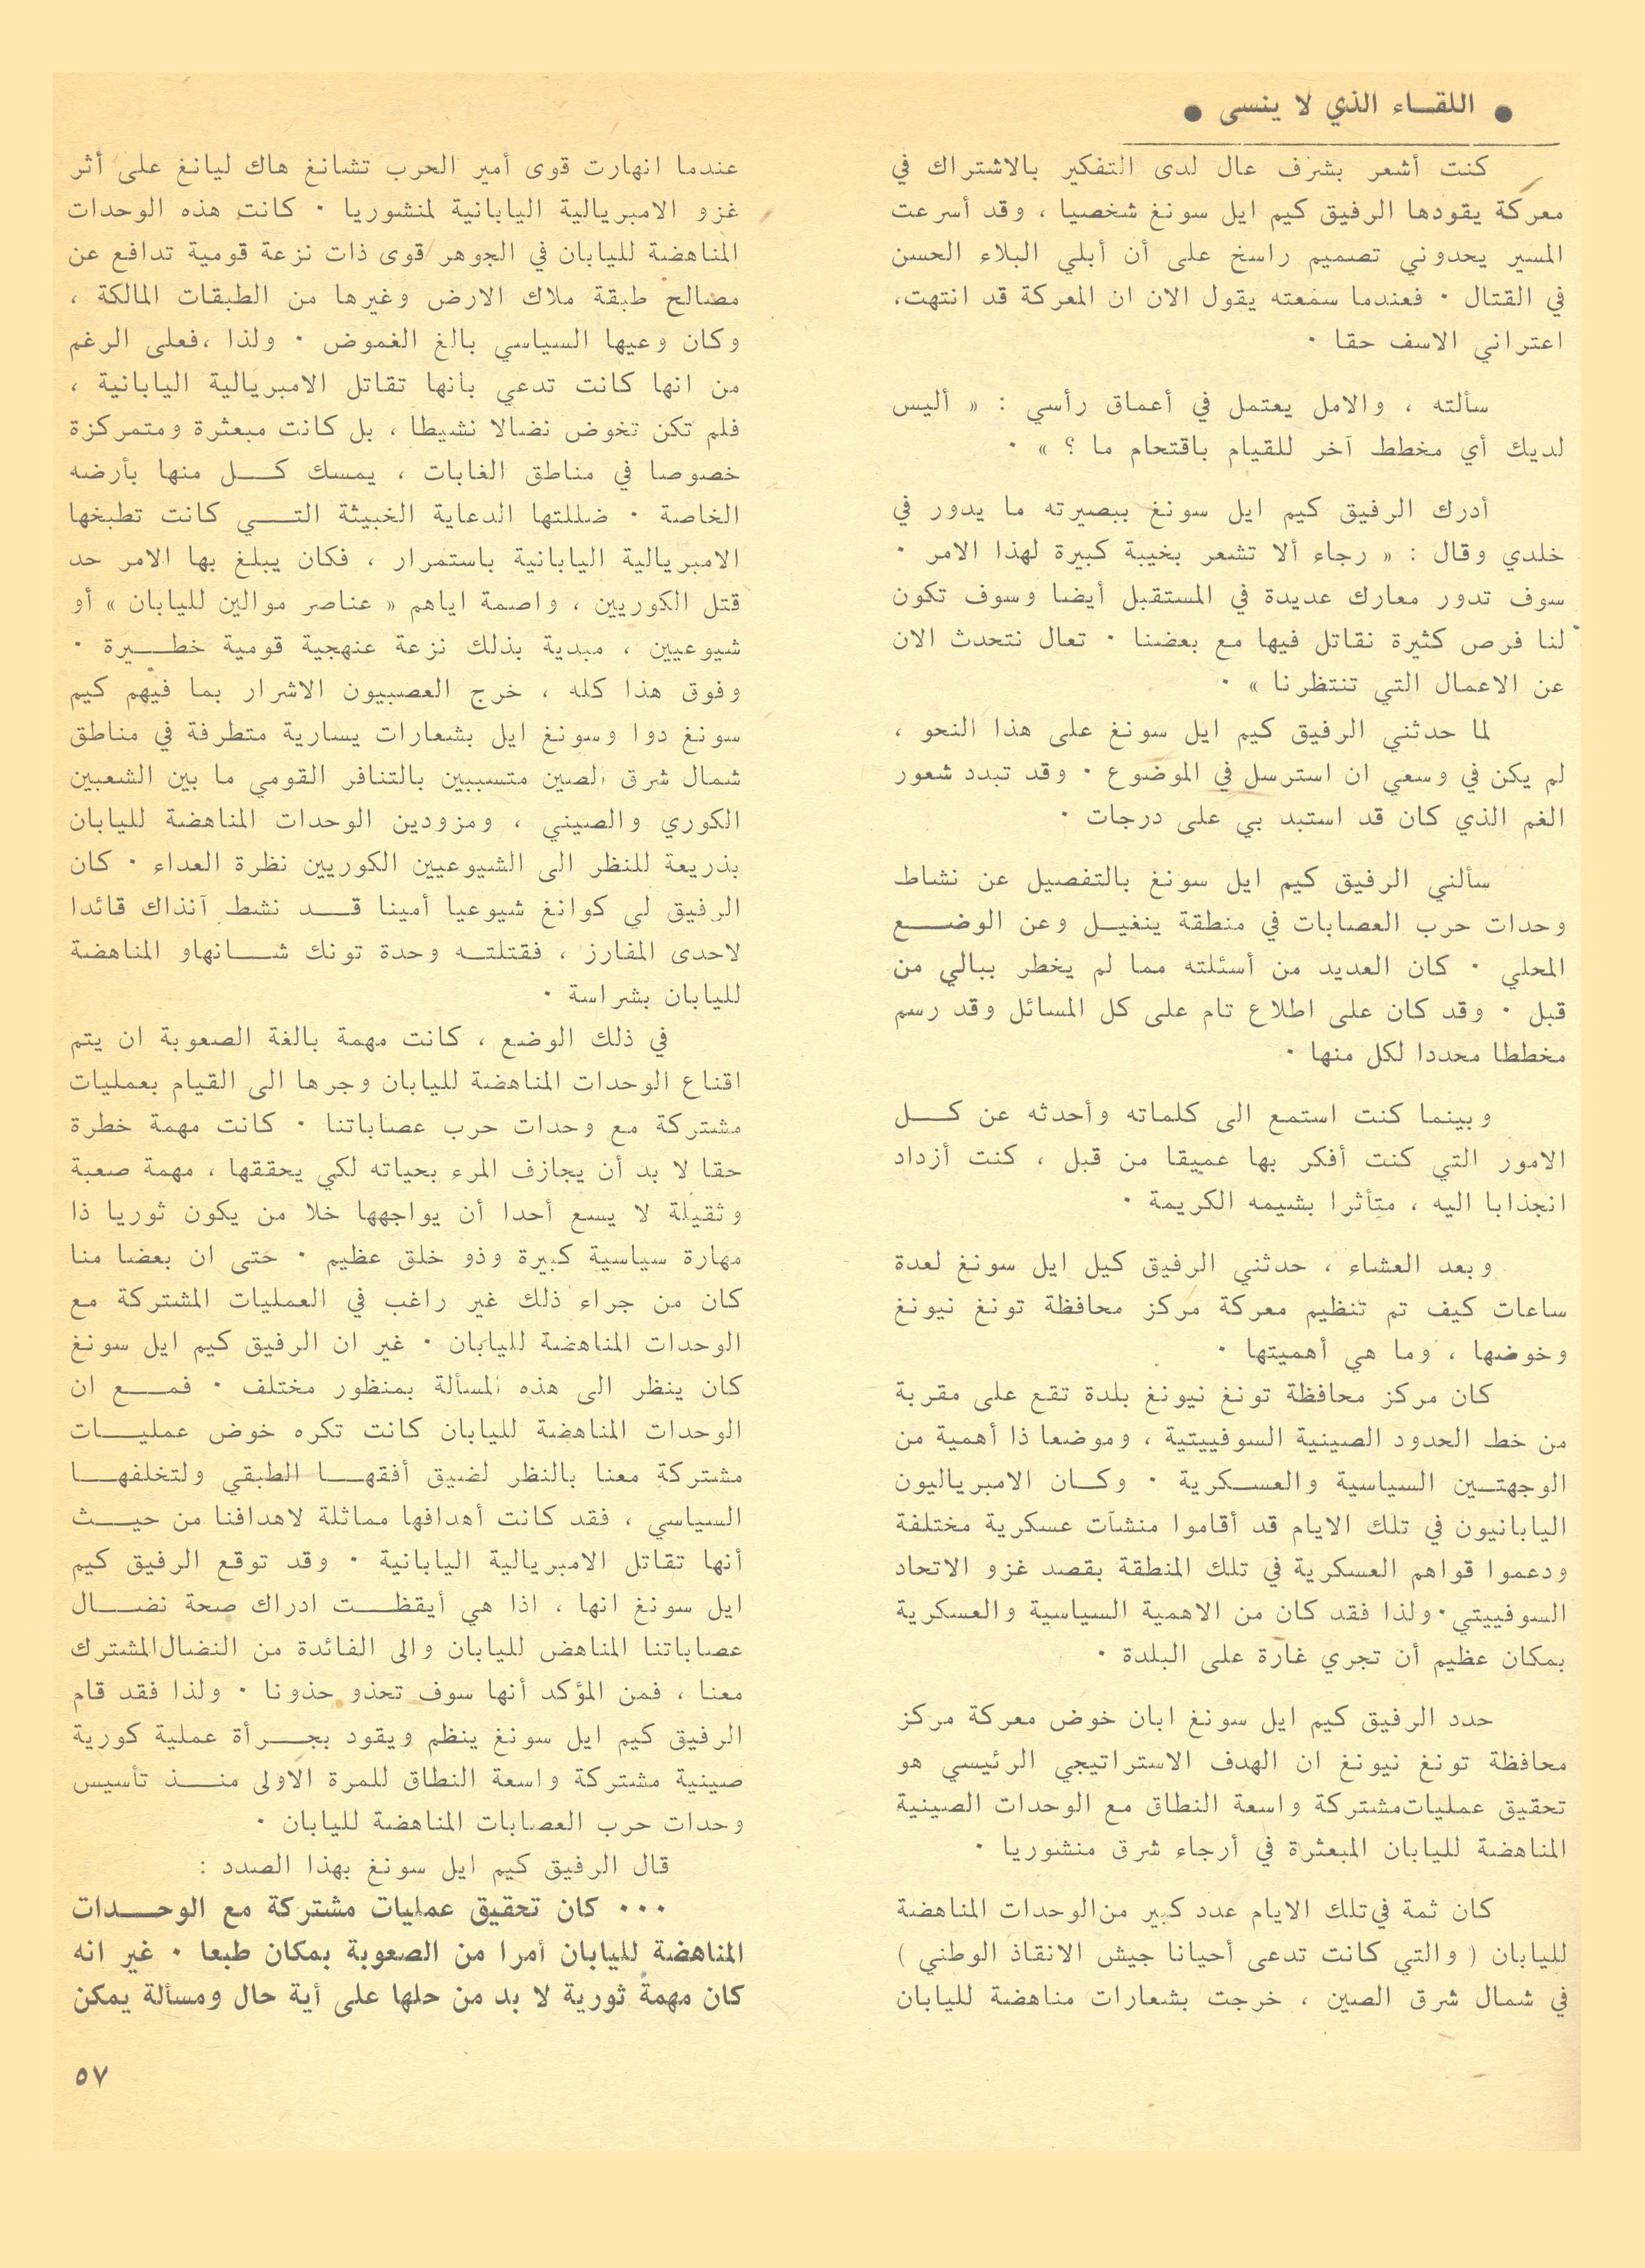 ● اللقـاء الذي لا ينسى ●
كنت أشعر بشرف عال لدى التفكير بالاشتراك في
معركة يقودها الرفيق كيم ايل سونغ شخصيا ، وقد أسرعت
المسير يحدوني تصميم راسخ على أن أبلي البلاء الحسن
في القتال ٠ فعندما سمعته يقول الان ان المعركة قد انتهت،
اعتراني الاسف حقا ٠
سألته ، والامل يعتمل في أعماق رأسي : « أليس
لديك أي مخطط آخر للقيام باقتحام ما ؟ » ٠
أدرك الرفيق كيم ايل سونغ ببصيرته ما يدور في
خلدي وقال : « رجاء ألا تشعر بخيبة كبيرة لهذا الامر ٠
سوف تدور معارك عديدة في المستقبل أيضا وسوف تكون
لنا فرص كثيرة نقاتل فيها مع بعضنا ٠ تعال نتحدث الان
عن الاعمال التي تنتظرنا » ٠
لما حدثني الرفيق كيم ايل سونغ على هذا النحو ،
لم يكن في وسعي ان استرسل في الموضوع ٠ وقد تبدد شعور
الغم الذي كان قد استبد بي على درجات ٠
سألني الرفيق كيم ايل سونغ بالتفصيل عن نشاط
وحدات حرب العصابات في منطقة ينغيـل وعن الوضـع
المحلي ٠ كان العديد من أسئلته مما لم يخطر ببالي من
قبل ٠ وقد كان على اطلاع تام على كل المسائل وقد رسم
مخططا محددا لكل منها ٠
وبينما كنت استمع الى كلماته وأحدثه عن كـل
الامور التي كنت أفكر بها عميقا من قبل ، كنت أزداد
انجذابا اليه ، متأثرا بشيمه الكريمة ٠
وبعد العشاء ، حدثني الرفيق كيل ايل سونغ لعدة
ساعات كيف تم تنظيم معركة مركز محافظة تونغ نيونغ
وخوضها ، وما هي أهميتها ٠
كان مركز محافظة تونغ نيونغ بلدة تقع على مقربة
من خط الحدود الصينية السوفييتية ، وموضعا ذا أهمية من
الوجهتـين السياسية والعسـكرية ٠ وكـان الامبرياليون
اليابانيون في تلك الايام قد أقاموا منشآت عسكرية مختلفة
ودعموا قواهم العسكرية في تلك المنطقة بقصد غزو الاتحاد
السوفييتي٠ ولذا فقد كان من الاهمية السياسية والعسكرية
بمكان عظيم أن تجري غارة على البلدة ٠
حدد الرفيق كيم ايل سونغ ابان خوض معركة مركز
محافظة تونغ نيونغ ان الهدف الاستراتيجي الرئيسي هو
تحقيق عمليات مشتركة واسعة النطاق مع الوحدات الصينية
المناهضة لليابان المبعثرة في أرجاء شرق منشوريا ٠
كان ثمة في تلك الايام عدد كبير من الوحدات المناهضة
لليابان ( والتي كانت تدعى أحيانا جيش الانقاذ الوطني )
في شمال شرق الصين ، خرجت بشعارات مناهضة لليابان
عندما انهارت قوى أمير الحرب تشانغ هاك ليانغ على أثر
غزو الامبريالية اليابانية لمنشوريا ٠ كانت هذه الوحدات
المناهضة لليابان في الجوهر قوى ذات نزعة قومية تدافع عن
مصالح طبقة ملاك الارض وغيرها من الطبقات المالكة ،
وكان وعيها السياسي بالغ الغموض ٠ ولذا ،فعلى الرغم
من انها كانت تدعي بانها تقاتل الامبريالية اليابانية ،
فلم تكن تخوض نضالا نشيطا ، بل كانت مبعثرة ومتمركزة
خصوصا في مناطق الغابات ، يمسك كـل منها بأرضه
الخاصة ٠ ضللتها الدعاية الخبيثة التـي كانت تطبخها
الامبريالية اليابانية باستمرار ، فكان يبلغ بها الامر حد
قتل الكوريين ، واصمة اياهم « عناصر موالين لليابان » أو
شيوعيين ، مبدية بذلك نزعة عنهجية قومية خطـيرة ٠
وفوق هذا كله ، خرج العصبيون الاشرار بما فيهم كيم
سونغ دوا وسونغ ايل بشعارات يسارية متطرفة في مناطق
شمال شرق الصين متسببين بالتنافر القومي ما بين الشعبين
الكوري والصيني ، ومزودين الوحدات المناهضة لليابان
بذريعة للنظر الى الشيوعيين الكوريين نظرة العداء ٠ كان
الرفيق لي كوانغ شيوعيا أمينا قـد نشط آنذاك قائدا
لاحدى المفارز ، فقتلتـه وحدة تونك شـانهاو المناهضة
لليابان بشراسة ٠
في ذلك الوضع ، كانت مهمة بالغة الصعوبة ان يتم
اقناع الوحدات المناهضة لليابان وجرها الى القيام بعمليات
مشتركة مع وحدات حرب عصاباتنا ٠ كانت مهمة خطرة
حقا لا بد أن يجازف المرء بحياته لكي يحققها ، مهمة صعبة
وثقيلة لا يسع أحدا أن يواجهها خلا من يكون ثوريا ذا
مهارة سياسية كبيرة وذو خلق عظيم ٠ حتى ان بعضا منا
كان من جراء ذلك غير راغب في العمليات المشتركة مع
الوحدات المناهضة لليابان ٠ غير ان الرفيق كيم ايل سونغ
كان ينظر الى هذه المسألة بمنظور مختلف ٠ فمـع ان
الوحدات المناهضة لليابان كانت تكره خوض عمليـات
مشتركة معنا بالنظر لضيق أفقهـا الطبقي ولتخلفهـا
السياسي ، فقد كانت أهدافها مماثلة لاهدافنا من حيـث
أنها تقاتل الامبريالية اليابانية ٠ وقد توقع الرفيق كيم
ايل سونغ انها ، اذا هي أيقظـت ادراك صحة نضـال
عصاباتنا المناهض لليابان والى الفائدة من النضال المشترك
معنا ، فمن المؤكد أنها سوف تحذو حذونا ٠ ولذا فقد قام
الرفيق كيم ايل سونغ ينظم ويقود بجـرأة عملية كورية
صينية مشتركة واسعة النطاق للمرة الاولى منـذ تأسيس
وحدات حرب العصابات المناهضة لليابان ٠
قال الرفيق كيم ايل سونغ بهذا الصدد :
٠٠٠ كان تحقيق عمليات مشتركة مع الوحـدات
المناهضة لليابان أمرا من الصعوبة بمكان طبعا ٠ غير انه
كان مهمة ثورية لا بد من حلها على أية حال ومسألة يمكن
٥٧